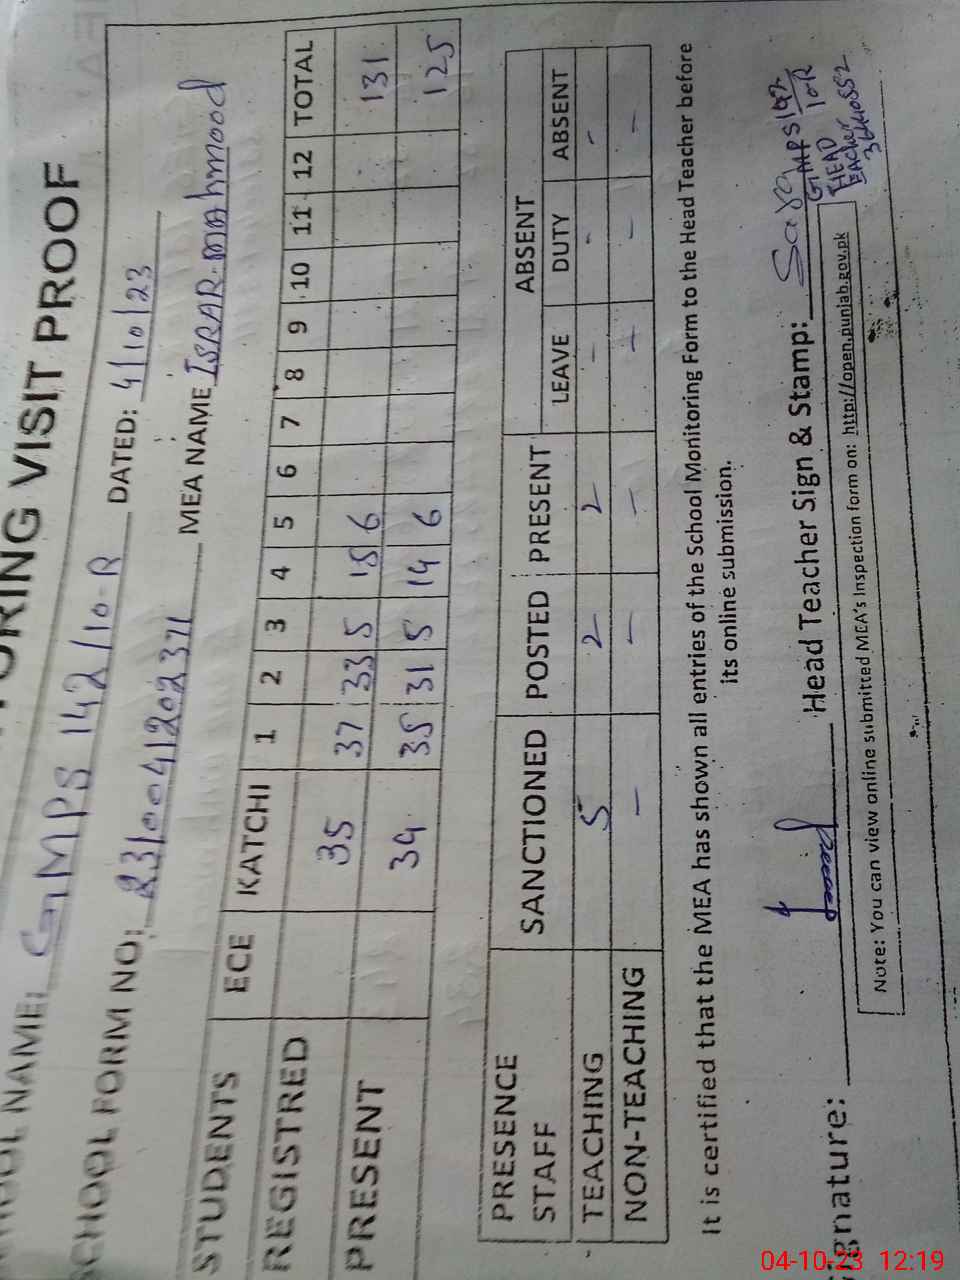 ORING VISIT PROOF
SCHOOL NAME: GMPS 142/10-R DATED: 4/10/23
SCHOOL FORM NO: 2310041202371 MEA NAME ISRAR mahmood
STUDENTS ECE KATCHI 1 2 3 4 5 6 7 8 9 10 11 12 TOTAL
REGISTRED 35 37 33 5 15 6 131
PRESENT 34 35 31 5 14 6 125
PRESENCE STAFF SANCTIONED POSTED PRESENT ABSENT
LEAVE DUTY ABSENT
TEACHING 5 2 2 - - -
NON-TEACHING - - - - - -
It is certified that the MEA has shown all entries of the School Monitoring Form to the Head Teacher before
its online submission.
Signature: Head Teacher Sign & Stamp:
GMPS 142/10R
HEAD
Teacher
Note: You can view online submitted MEA's Inspection form on: http://open.punjab.gov.pk
04-10-23 12:19